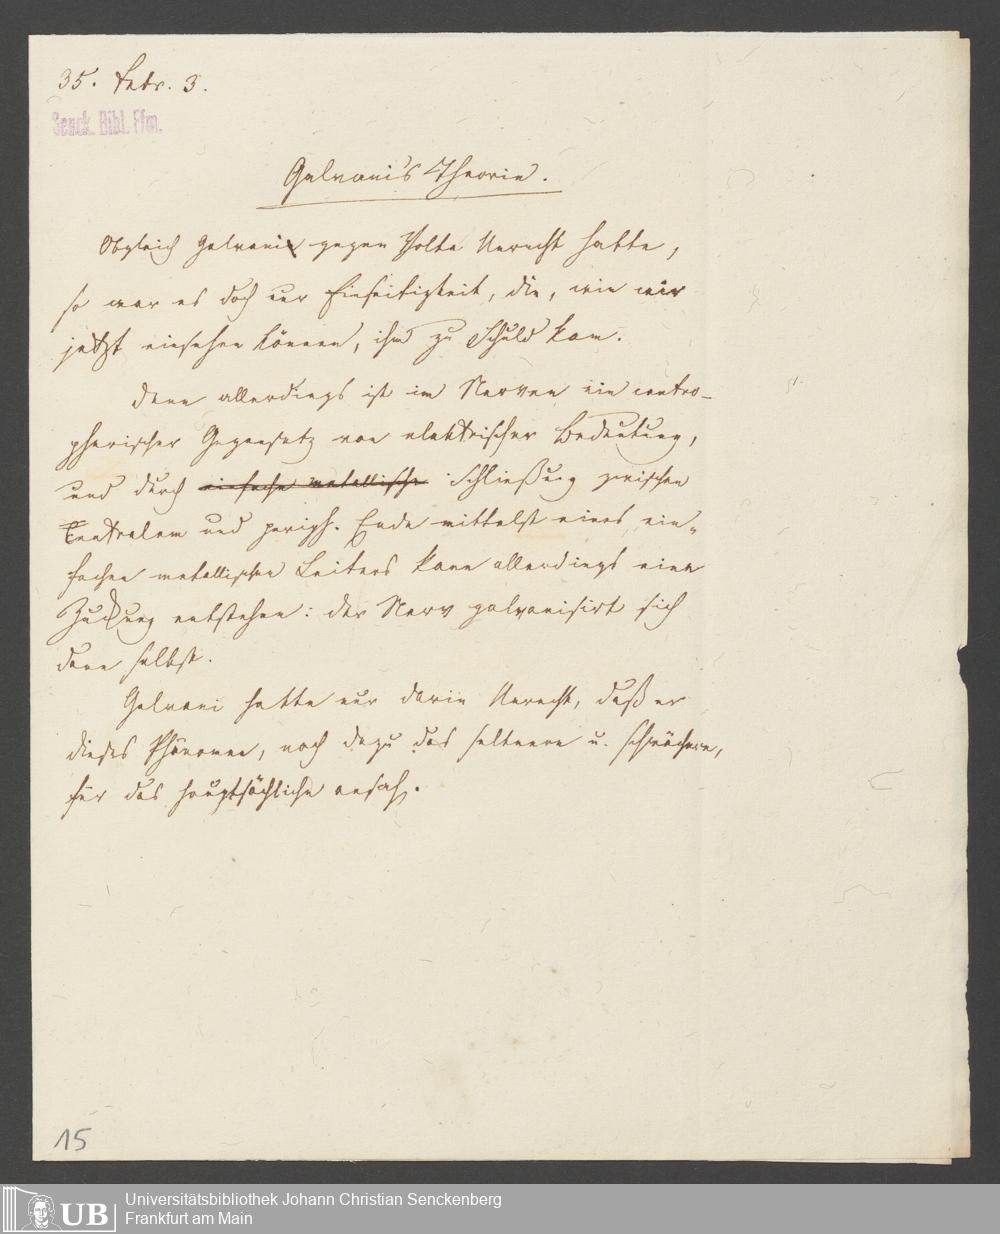 35. Febr. 3.
Senck. Bibl. Ffm.
Galvani's Theorie.
Obgleich Galvani gegen Volta Unrecht hatte,
so war es doch nur Einseitigkeit, die, wie wir
jetzt einsehen können, ihm zu Schuld kam.
Denn allerdings ist im Nerven ein centro-
pherischer Gegensatz von elektrischer Bedeutung,
und durch einfache metallische Schließung zwischen
Centralem und periph. Ende mittelst eines ein-
fachen metallischen Leiters kann allerdings eine
Zuckung entstehen: der Nerv galvanisirt sich
dann selbst.
Galvani hatte nur darin Unrecht, daß er
dieses Phänomen, noch dazu das seltnere u. schwächere,
für das hauptsächliche ansah.
15
UB
Universitätsbibliothek Johann Christian Senckenberg
Frankfurt am Main